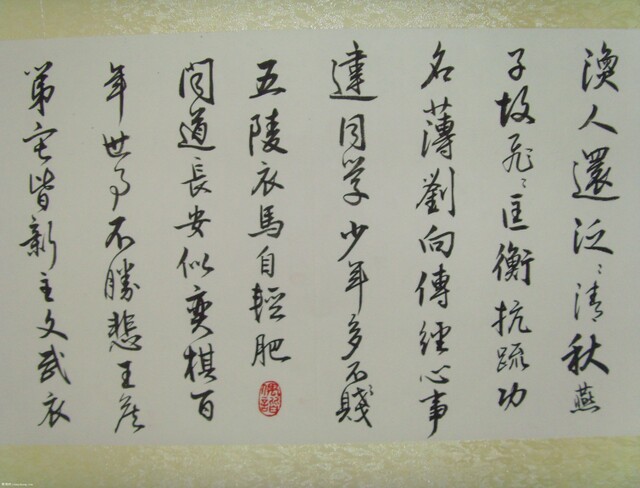 漁人還泛〻清秋燕
子故飛〻匡衡抗疏功
名薄劉向傳經心事
違同学少年多不賤
五陵衣馬自輕肥
聞道長安似奕棋百
年世事不勝悲王侯
第宅皆新主文武衣